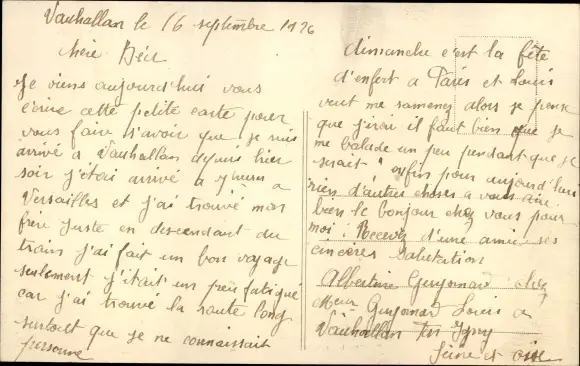 Vauhallan le 16 septembre 1926
Chère
Je viens aujourd'hui vous
écrire cette petite carte pour
vous faire s'avoir que je suis
arrivé a Vauhallan depuis hier
soir j'étai arrivé a 7 heures a
Versailles et j'ai trouvé mon
frère juste en descendant du
train j'ai fait un bon voyage
seulement j'était un peu fatigué
car j'ai trouvé la route long
surtout que je ne connaissait
personne
dimanche c'est la fête
d'enfert a Paris et Louis
veut me samenez alors je pense
que j'irai il faut bien que je
me balade un peu pendant que je
serait enfin pour aujourd'hui
rien d'autres choses a vous dire
bien le bonjour chez vous pour
moi. Recevez d'une amie ses
sincères salutation
Albertine Guyomar chez
Guyomar Louis a
Vauhallan Igny
Seine et oise